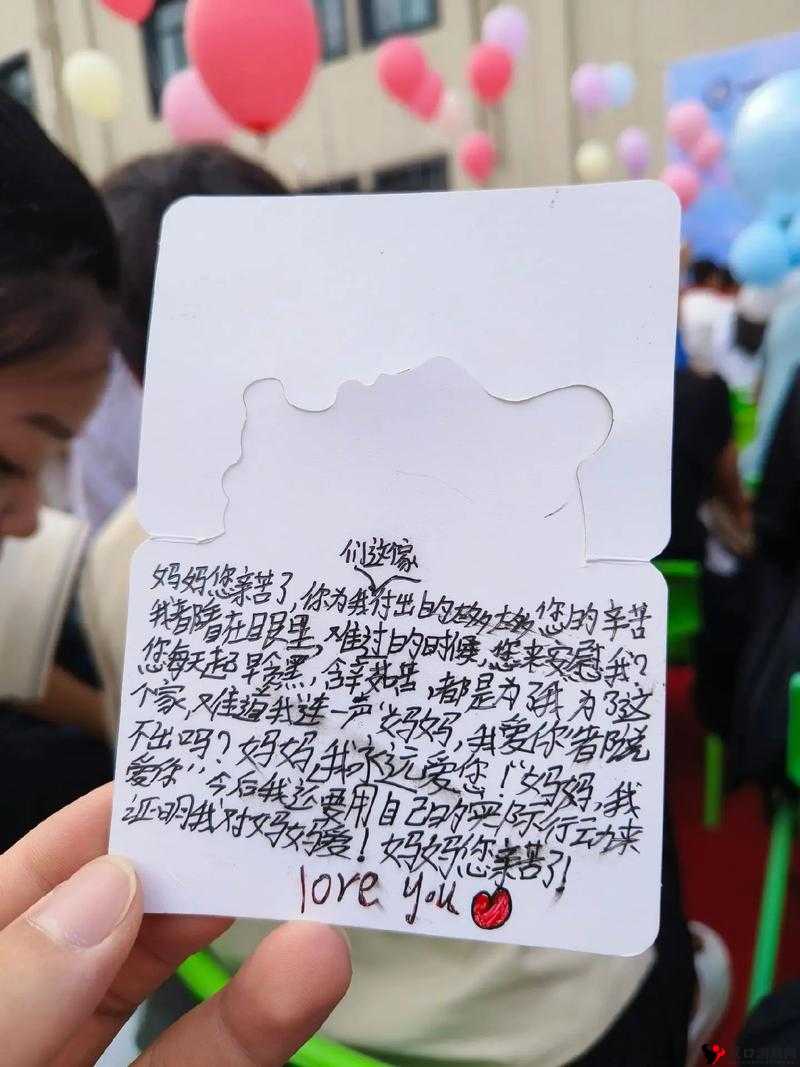 们这家
妈妈您亲苦了,你为我付出的够多够多您的辛苦
我都看在眼里,难过的时候,您来安慰我?
您每天起早贪黑,含辛茹苦,都是为了我为了这
个家,难道我连一声"妈妈,我爱你"都说
不出吗?妈妈,我永远爱您!"妈妈,我
爱你"今后我要用自己的实际行动来
证明我对妈妈爱!妈妈您亲苦了!
love you